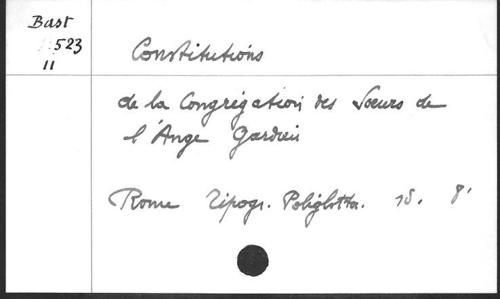 Bast
523
II
Constitutions
de la Congrégation des Soeurs de
l'Ange Gardien
Rome Tipogr. Poliglotta. 8°